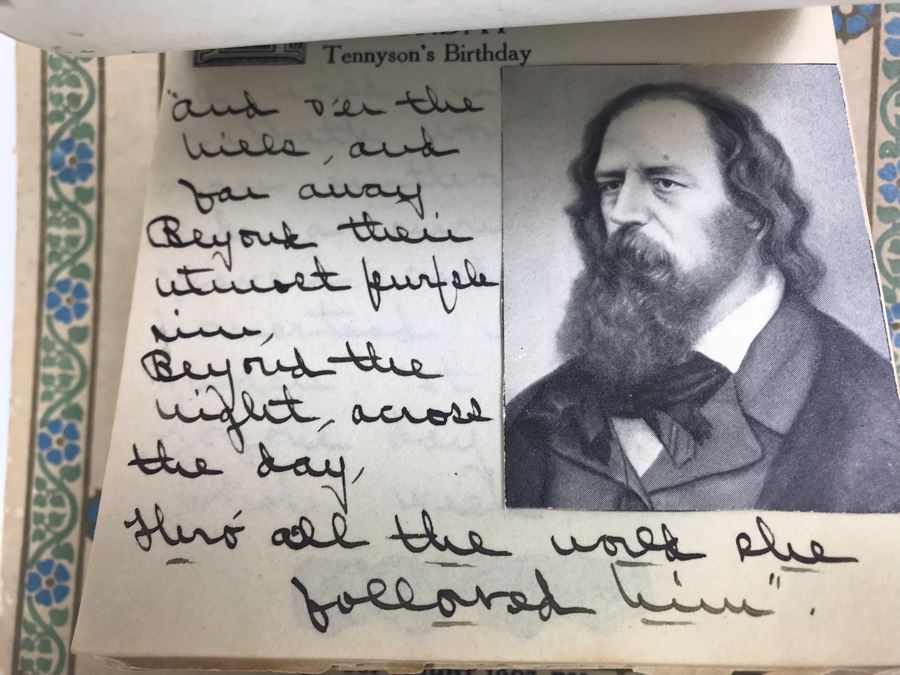 Tennyson's Birthday
"and o'er the
hills, and
far away
Beyond their
utmost purple
rim,
Beyond the
night, across
the day,
Thro' all the world she
followed him".